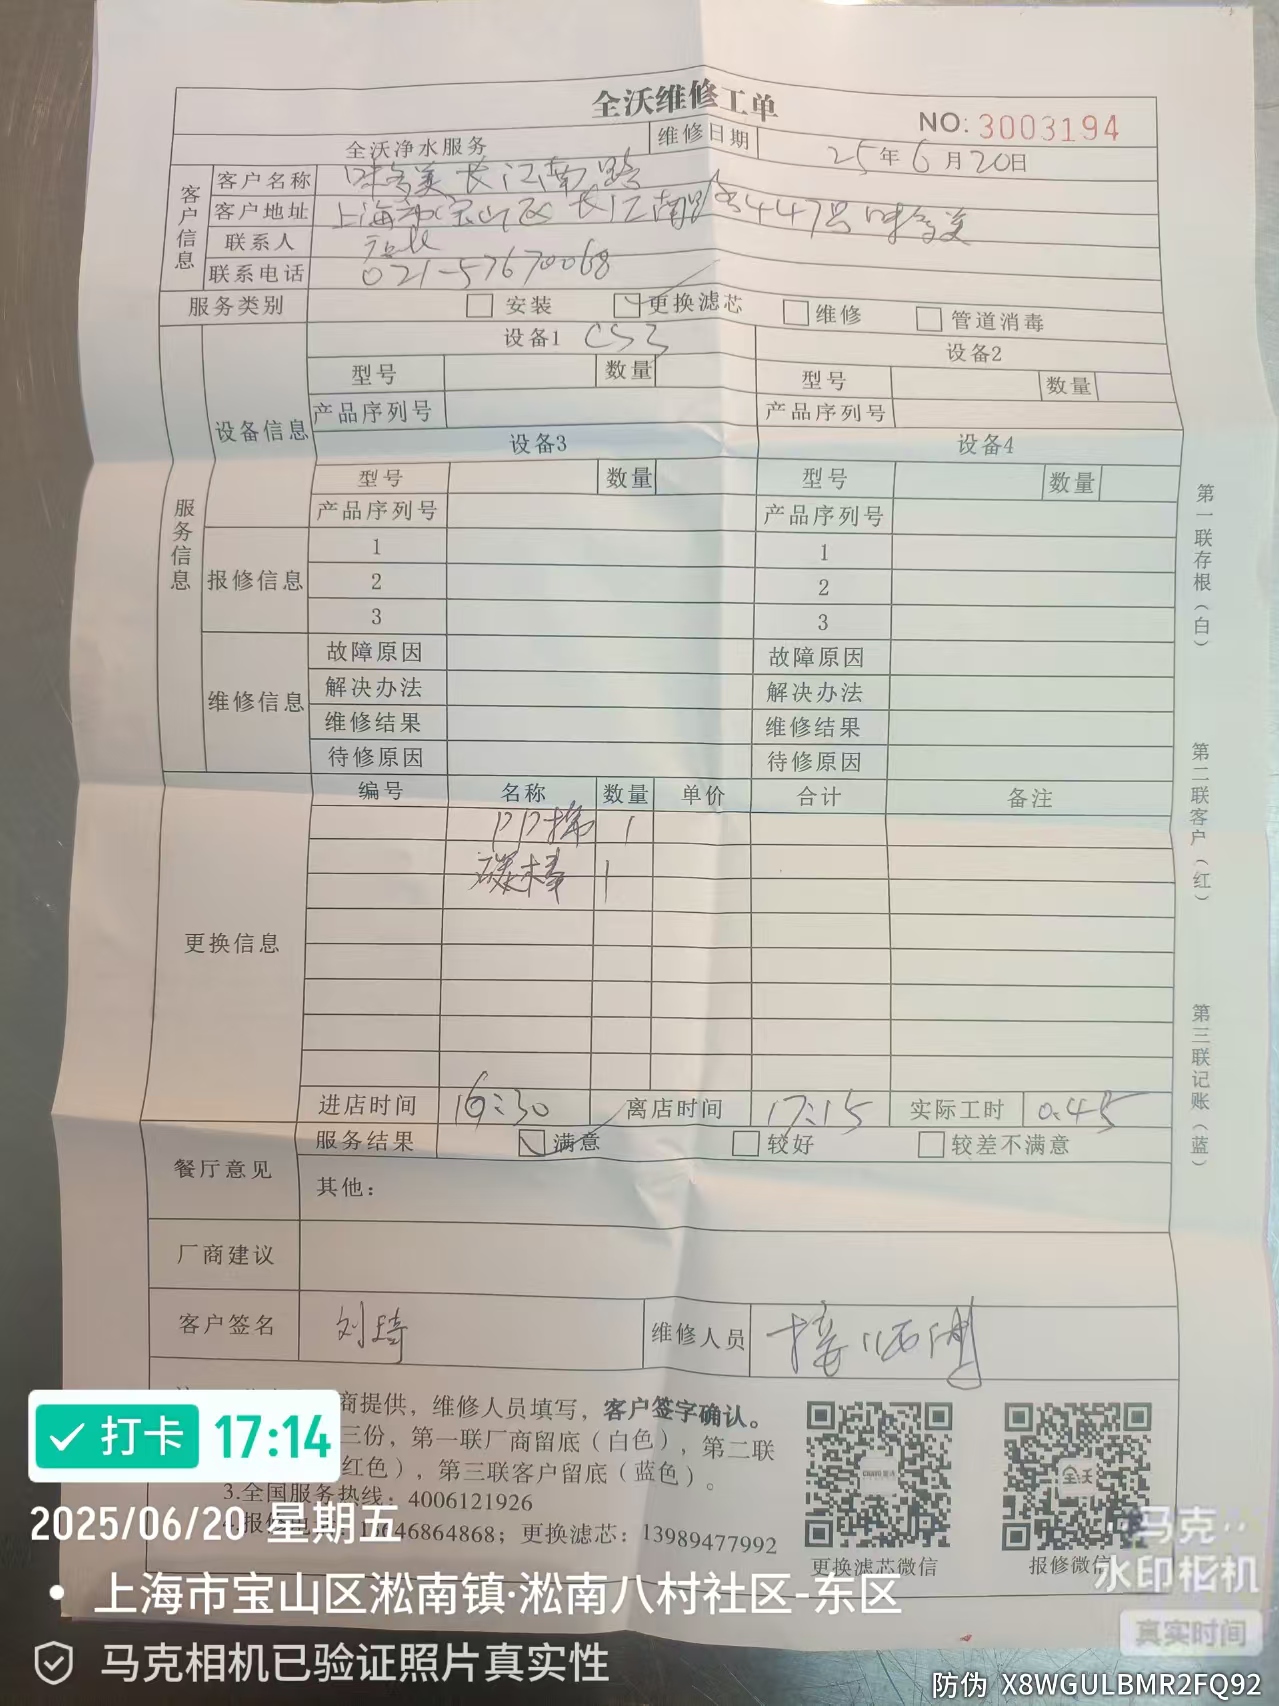 全沃维修工单
NO: 3003194
全沃净水服务 维修日期 25年6月20日
客户信息
客户名称 味多美长江南路
客户地址 上海市宝山区长江南路447号味多美
联系人 店长
联系电话 021-57670068
服务类别 安装 更换滤芯 维修 管道消毒
服务信息
设备信息
设备1 CS3 设备2
型号 数量 型号 数量
产品序列号 产品序列号
设备3 设备4
型号 数量 型号 数量
产品序列号 产品序列号
报修信息
1 1
2 2
3 3
维修信息
故障原因 故障原因
解决办法 解决办法
维修结果 维修结果
待修原因 待修原因
更换信息
编号 名称 数量 单价 合计 备注
PP棉 1
碳棒 1
进店时间 16:30 离店时间 17:15 实际工时 0.45
餐厅意见
服务结果 满意 较好 较差不满意
其他：
厂商建议
客户签名 刘琦 维修人员
第一联存根（白）
第二联客户（红）
第三联记账（蓝）
商提供，维修人员填写，客户签字确认。
三份，第一联厂商留底（白色），第二联
红色），第三联客户留底（蓝色）。
3.全国服务热线：4006121926
646864868；更换滤芯：13989477992
更换滤芯微信
报修微信
全沃
打卡 17:14
2025/06/20 星期五
上海市宝山区淞南镇·淞南八村社区-东区
马克相机已验证照片真实性
马克
水印相机
真实时间
防伪 X8WGULBMR2FQ92